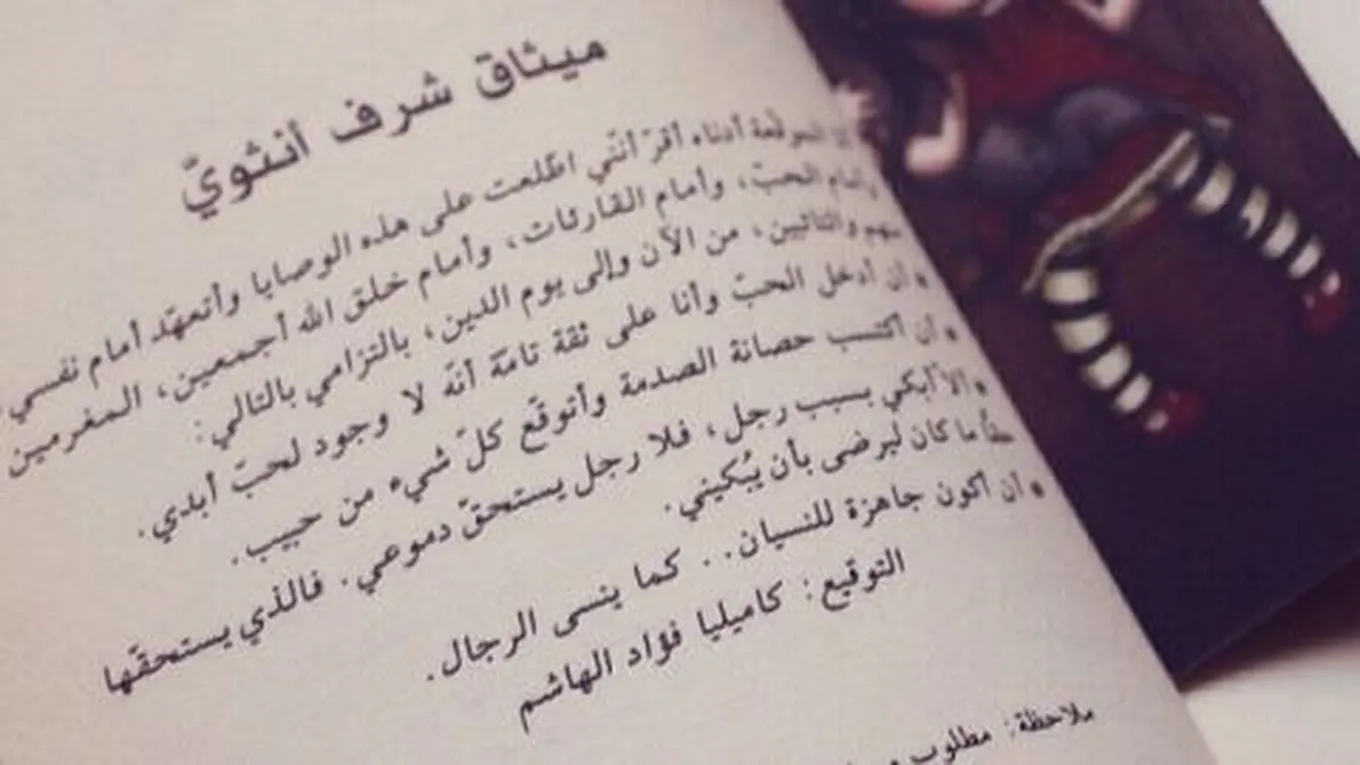 ميثاق شرف أنثويّ
أنا الموقّعة أدناه أقرّ أنّني اطّلعت على هذه الوصايا وأتعهّد أمام نفسي
وأمام الحبّ، وأمام القارئات، وأمام خلق الله أجمعين، المغرمين
منهم والتائبين، من الآن وإلى يوم الدين، بالتزامي بالتالي:
• أن أدخل الحبّ وأنا على ثقة تامّة أنّه لا وجود لحبّ أبدي.
• أن أكتسب حصانة الصدمة وأتوقّع كلّ شيء من حبيب.
• ألا أبكي بسبب رجل، فلا رجل يستحقّ دموعي. فالذي يستحقّها
حقاً ما كان ليرضى بأن يُبكيني.
• أن أكون جاهزة للنسيان.. كما ينسى الرجال.
التوقيع: كاميليا فؤاد الهاشم
ملاحظة: مطلوب